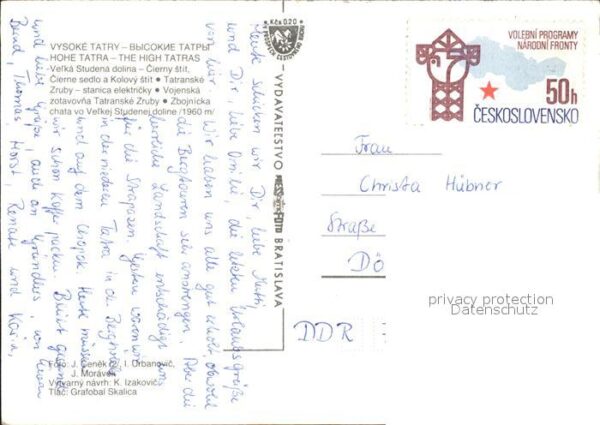 VYSOKÉ TATRY – ВЫСОКИЕ ТАТРЫ
HOHE TATRA – THE HIGH TATRAS
Veľká Studená dolina – Čierny štít,
Čierne sedlo a Kolový štít • Tatranské
Zruby – stanica električky • Vojenská
zotavovňa Tatranské Zruby – Zbojnícka
chata vo Veľkej Studenej doline /1960 m/
Heute schicken wir Dir, liebe Mutti,
und Dir, liebe Omi, die letzten Urlaubsgrüße
von hier. Wir haben uns alle gut erholt, obwohl
die Bergtouren sehr anstrengen. Aber die
herrliche Landschaft entschädigt uns
für die Strapazen. Gestern waren wir
in der niederen Tatra in der
und auf dem Chopok. Heute müssen
wir schon Koffer packen. Bleibt gesund
und liebe Grüße, auch an Gründlers, von Euren
Bernd, Thomas, Horst, Renate und Karin.
Foto: J. Čeněk /2/, I. Urbanovič,
J. Morávek
Výtvarný návrh: K. Izakovič
Tlač: Grafobal Skalica
Kčs 0.20
VYDAVATEĽSTVO PRESSFOTO BRATISLAVA
VOLEBNÍ PROGRAMY
NÁRODNÍ FRONTY
50h
ČESKOSLOVENSKO
Frau
Christa Hübner
Straße
Dö
DDR
privacy protection
Datenschutz